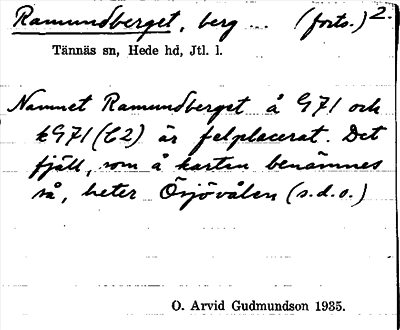 Ramundberget, berg ... (forts.) 2.
Tännäs sn, Hede hd, Jtl. l.
Namnet Ramundberget å G71 och
kG71 (C2) är felplacerat. Det
fjäll, som å kartan benämnes
så, heter Ösjövålen (s.d.o.)
O. Arvid Gudmundson 1935.